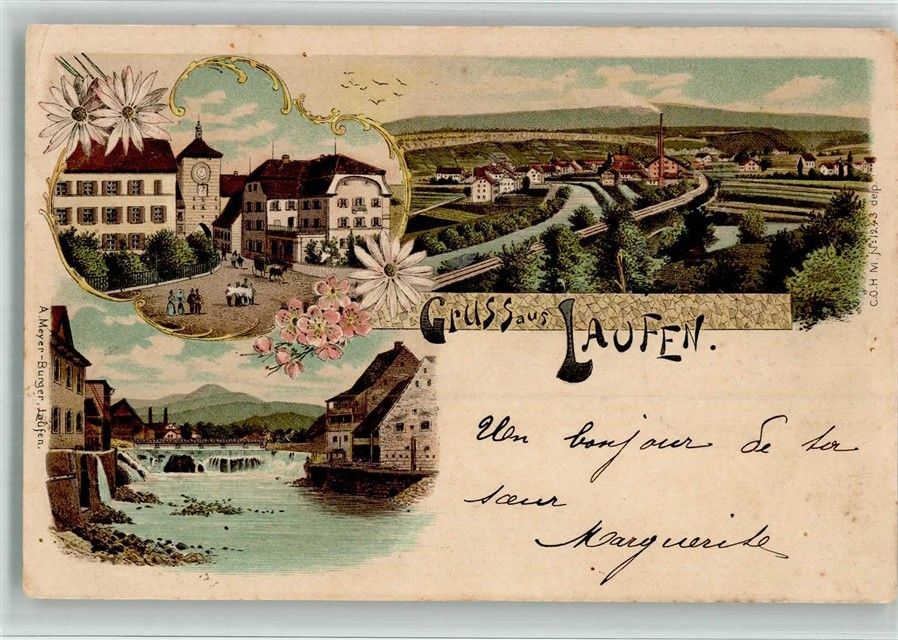 Gruss aus Laufen.
Un bonjour de ta
sœur
Marguerite
A. Meyer-Burger, Laufen.
C.O.H.M. No. 1243 dep.